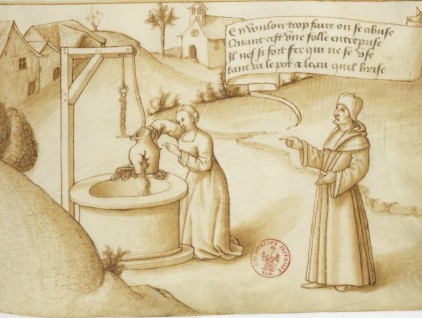 En voulon trop faire on se abuse
Quant est vne folle entreprise
Il nest si fort fer qui ne se vse
tant va le pot a leau quil brise